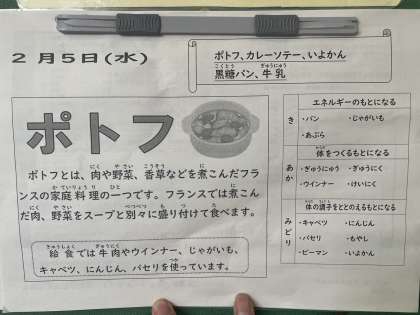 2月5日(水)
ポトフ、カレーソテー、いよかん
黒糖パン、牛乳
ポトフ
ポトフとは、肉や野菜、香草などを煮こんだフラ
ンスの家庭料理の一つです。フランスでは煮こん
だ肉、野菜をスープと別々に盛り付けて食べます。
給食では牛肉やウインナー、じゃがいも、
キャベツ、にんじん、パセリを使っています。
き
エネルギーのもとになる
・パン ・じゃがいも
・あぶら
あか
体をつくるもとになる
・ぎゅうにゅう ・ぎゅうにく
・ウインナー ・けいにく
みどり
体の調子をととのえるもとになる
・キャベツ ・にんじん
・パセリ ・もやし
・ピーマン ・いよかん